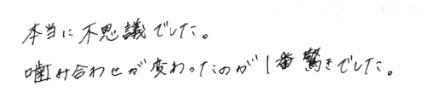 本当に不思議でした。
噛み合わせが変わったのが1番驚きでした。